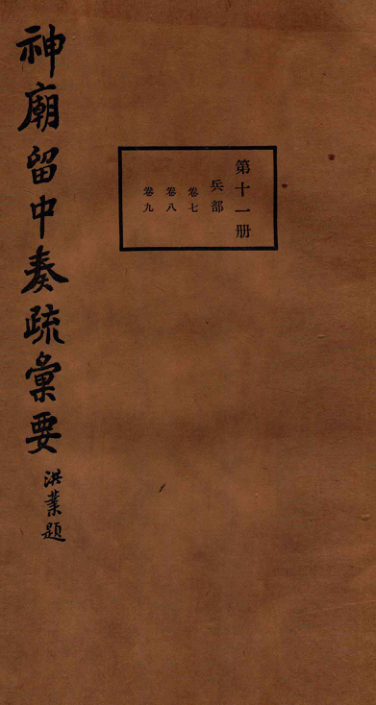 第十一册
兵部
卷七
卷八
卷九
神廟留中奏疏彙要
洪業題